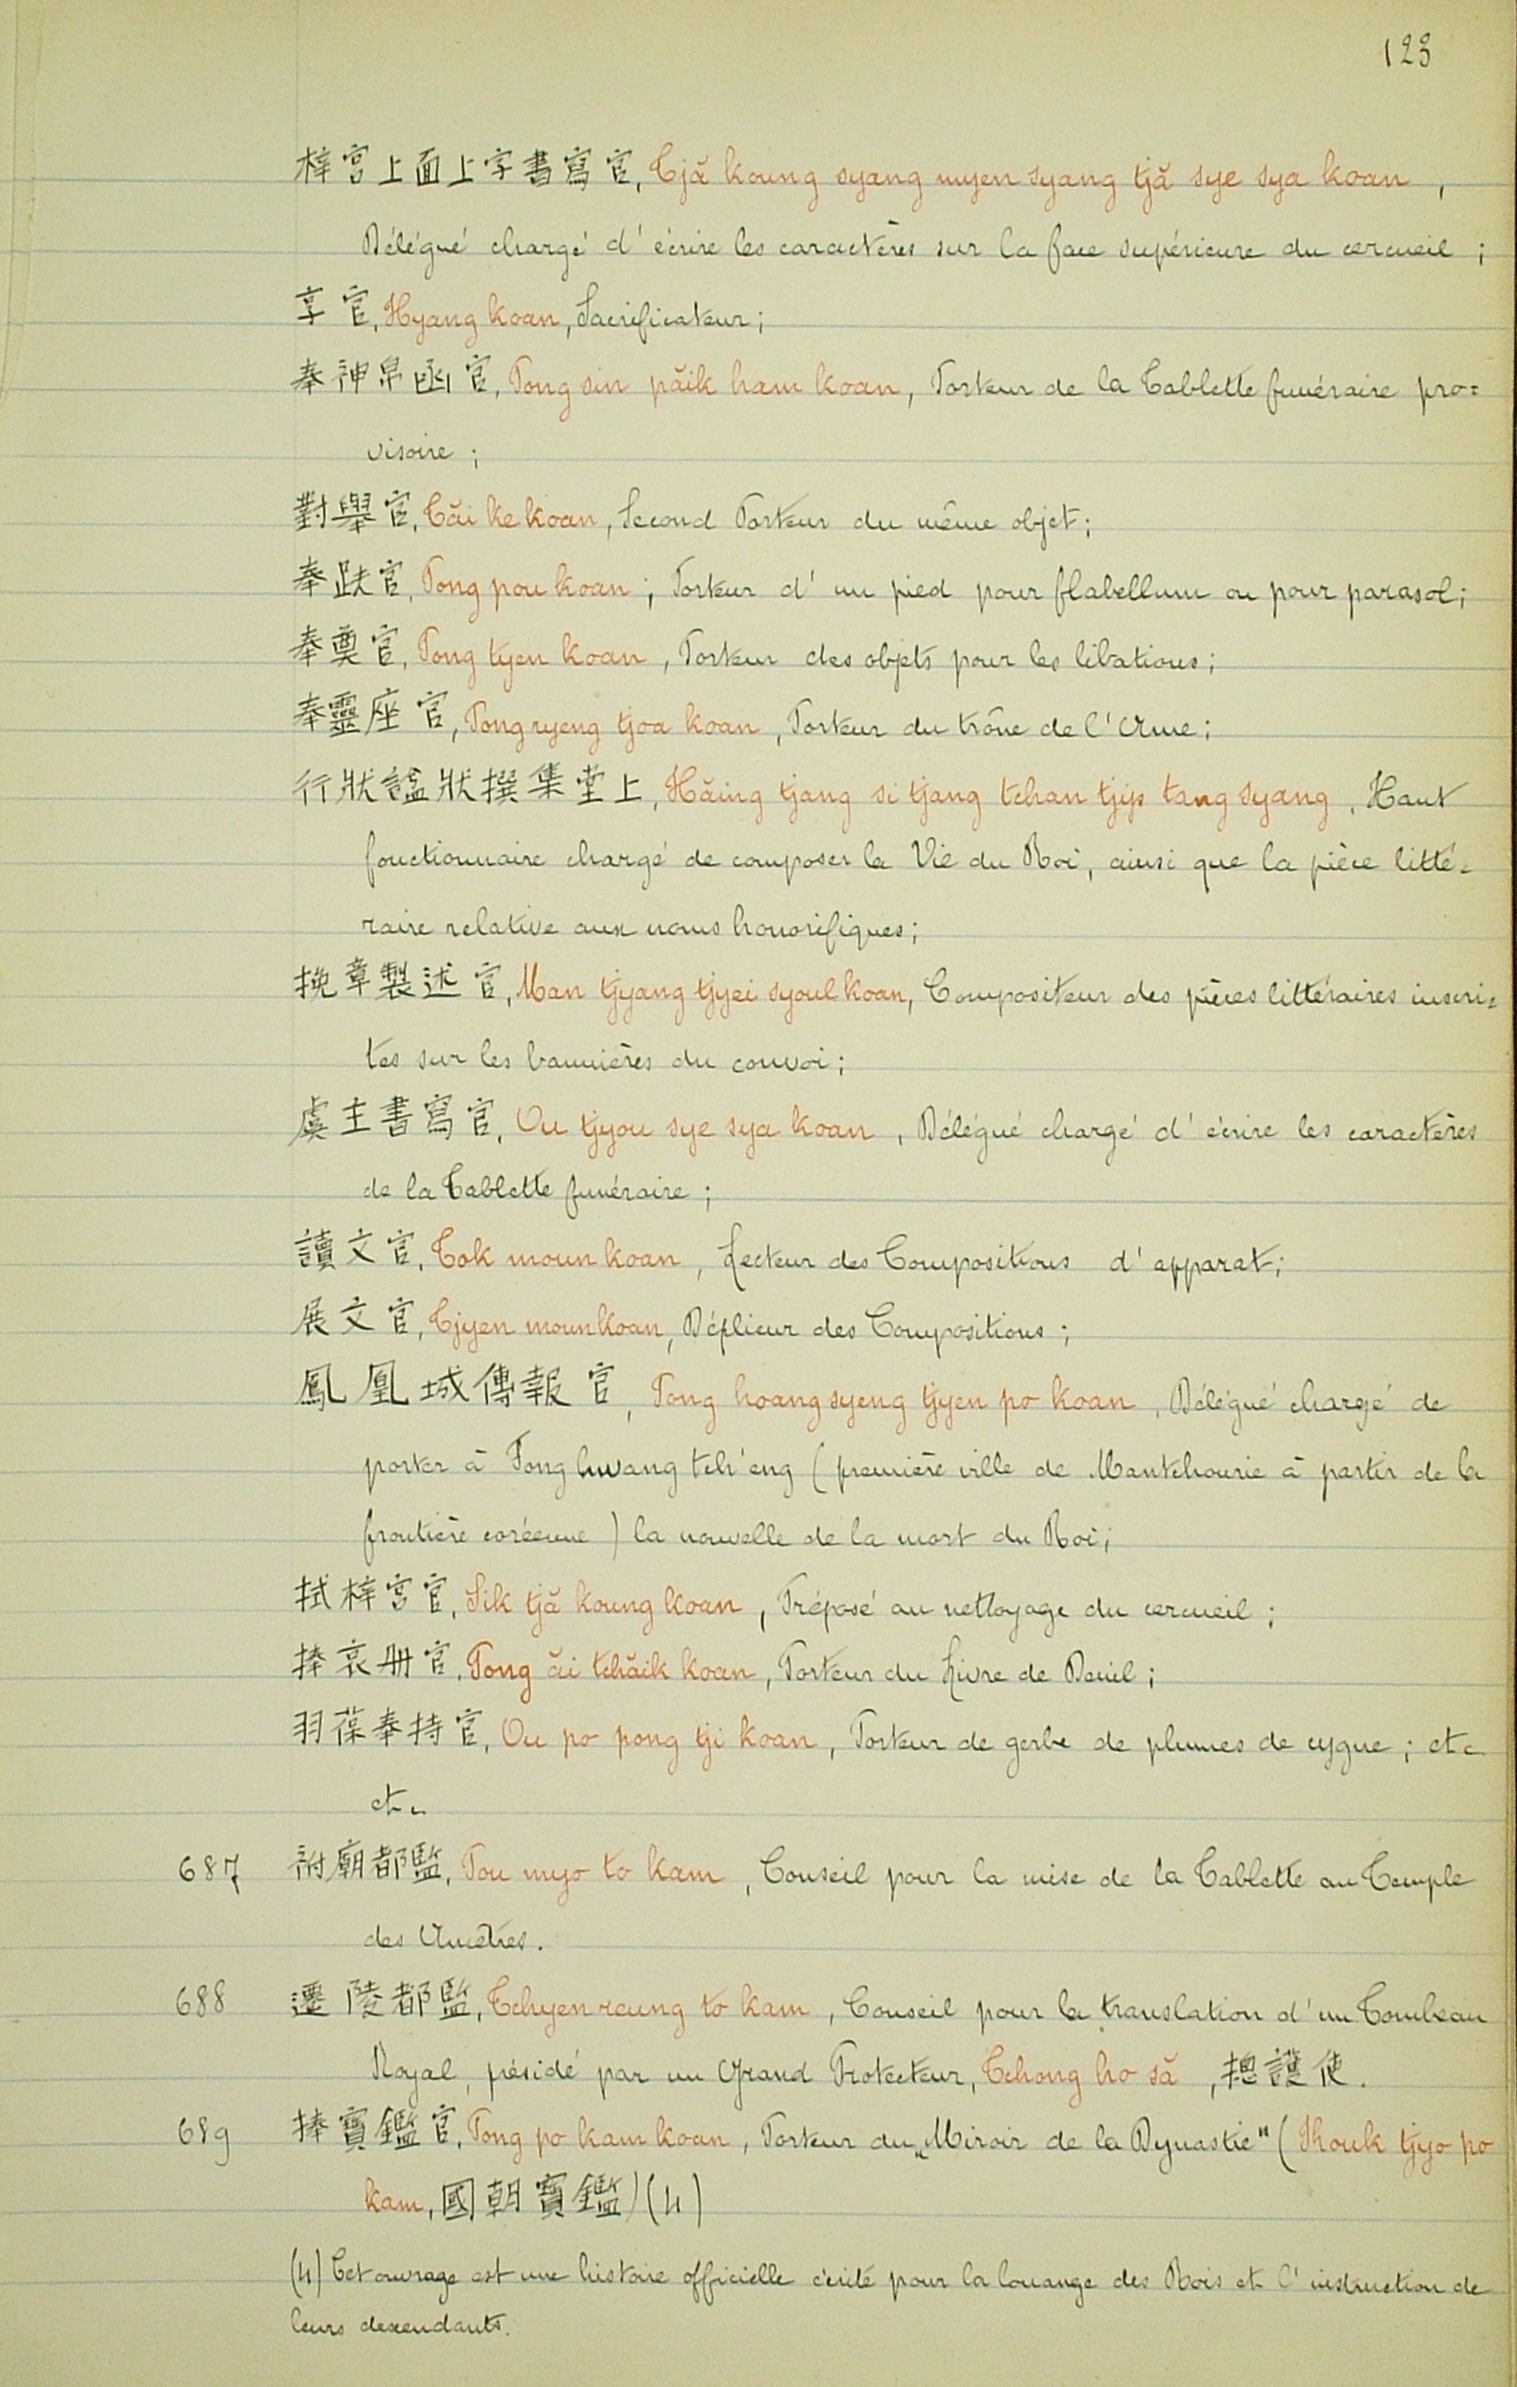 123
梓宮上面上字書寫官, Tjă koung syang myen syang tjă sye sya koan,
Délégué chargé d'écrire les caractères sur la face supérieure du cercueil;
享官, Hyang koan, Sacrificateur;
奉神帛凾官, Pong sin păik ham koan, Porteur de la Tablette funéraire pro=
visoire;
對擧官, Tăi ke koan, Second Porteur du même objet;
奉趺官, Pong pou koan; Porteur d'un pied pour flabellum ou pour parasol;
奉奠官, Pong tyen koan, Porteur des objets pour les libations;
奉靈座官, Pong ryeng tjoa koan, Porteur du trône de l'Ame;
行狀諡狀撰集堂上, Hăing tjang si tjang tchan tjip tang syang, Haut
fonctionnaire chargé de composer la Vie du Roi, ainsi que la pièce litté-
raire relative aux noms honorifiques;
挽章製述官, Man tjyang tjyei syoul koan, Compositeur des pièces littéraires inscri-
tes sur les bannières du convoi;
虞主書寫官, Ou tjyou sye sya koan, Délégué chargé d'écrire les caractères
de la Tablette funéraire;
讀文官, Tok moun koan, Lecteur des Compositions d'apparat;
展文官, Tjyen moun koan, Déplieur des Compositions;
鳳凰城傳報官, Pong hoang syeng tjyen po koan, Délégué chargé de
porter à Fong hwang tch'eng (première ville de Mantchourie à partir de la
frontière coréenne) la nouvelle de la mort du Roi;
拭梓宮官, Sik tjă koung koan, Préposé au nettoyage du cercueil;
捧哀册官, Pong ăi tchăik koan, Porteur du Livre de Deuil;
羽葆奉持官, Ou po pong tji koan, Porteur de gerbe de plumes de cygne; etc
etc
687 祔廟都監, Pou myo to kam, Conseil pour la mise de la Tablette au Temple
des Ancêtres.
688 遷陵都監, Tchyen reung to kam, Conseil pour la translation d'un Tombeau
Royal, présidé par un Grand Protecteur, Tchong ho să,摠護使.
689 捧寶鑑官, Pong po kam koan, Porteur du "Miroir de la Dynastie" (Kouk tjyo po
kam, 國朝寶鑑)(4)
(4) Cet ouvrage est une histoire officielle écrite pour la louange des Rois et l'instruction de
leurs descendants.